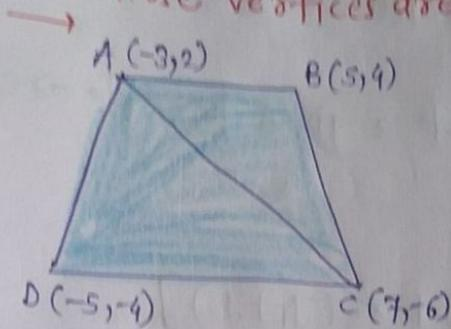 vertices are
A (-3,2)
B(5,4)
D (-5,-4)
C (7,-6)